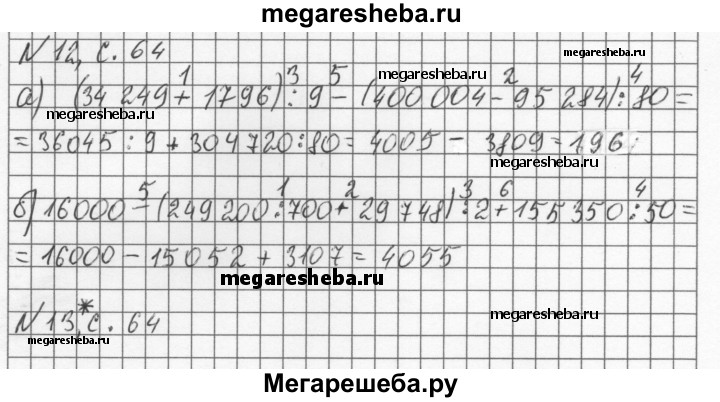 megaresheba.ru
N 12, с. 64
megaresheba.ru
1 3 5 2 4
а) (34 249 + 1796) : 9 - (400 004 - 95 284) : 80 =
megaresheba.ru
megaresheba.ru
= 36045 : 9 + 304720 : 80 = 4005 - 3809 = 196;
megaresheba.ru
5 1 2 3 6 4
б) 16000 - (249 200 : 700 + 29 748) : 2 + 155 350 : 50 =
= 16000 - 15052 + 3107 = 4055
megaresheba.ru
N 13*, с. 64
megaresheba.ru
megaresheba.ru
Мегарешеба.ру